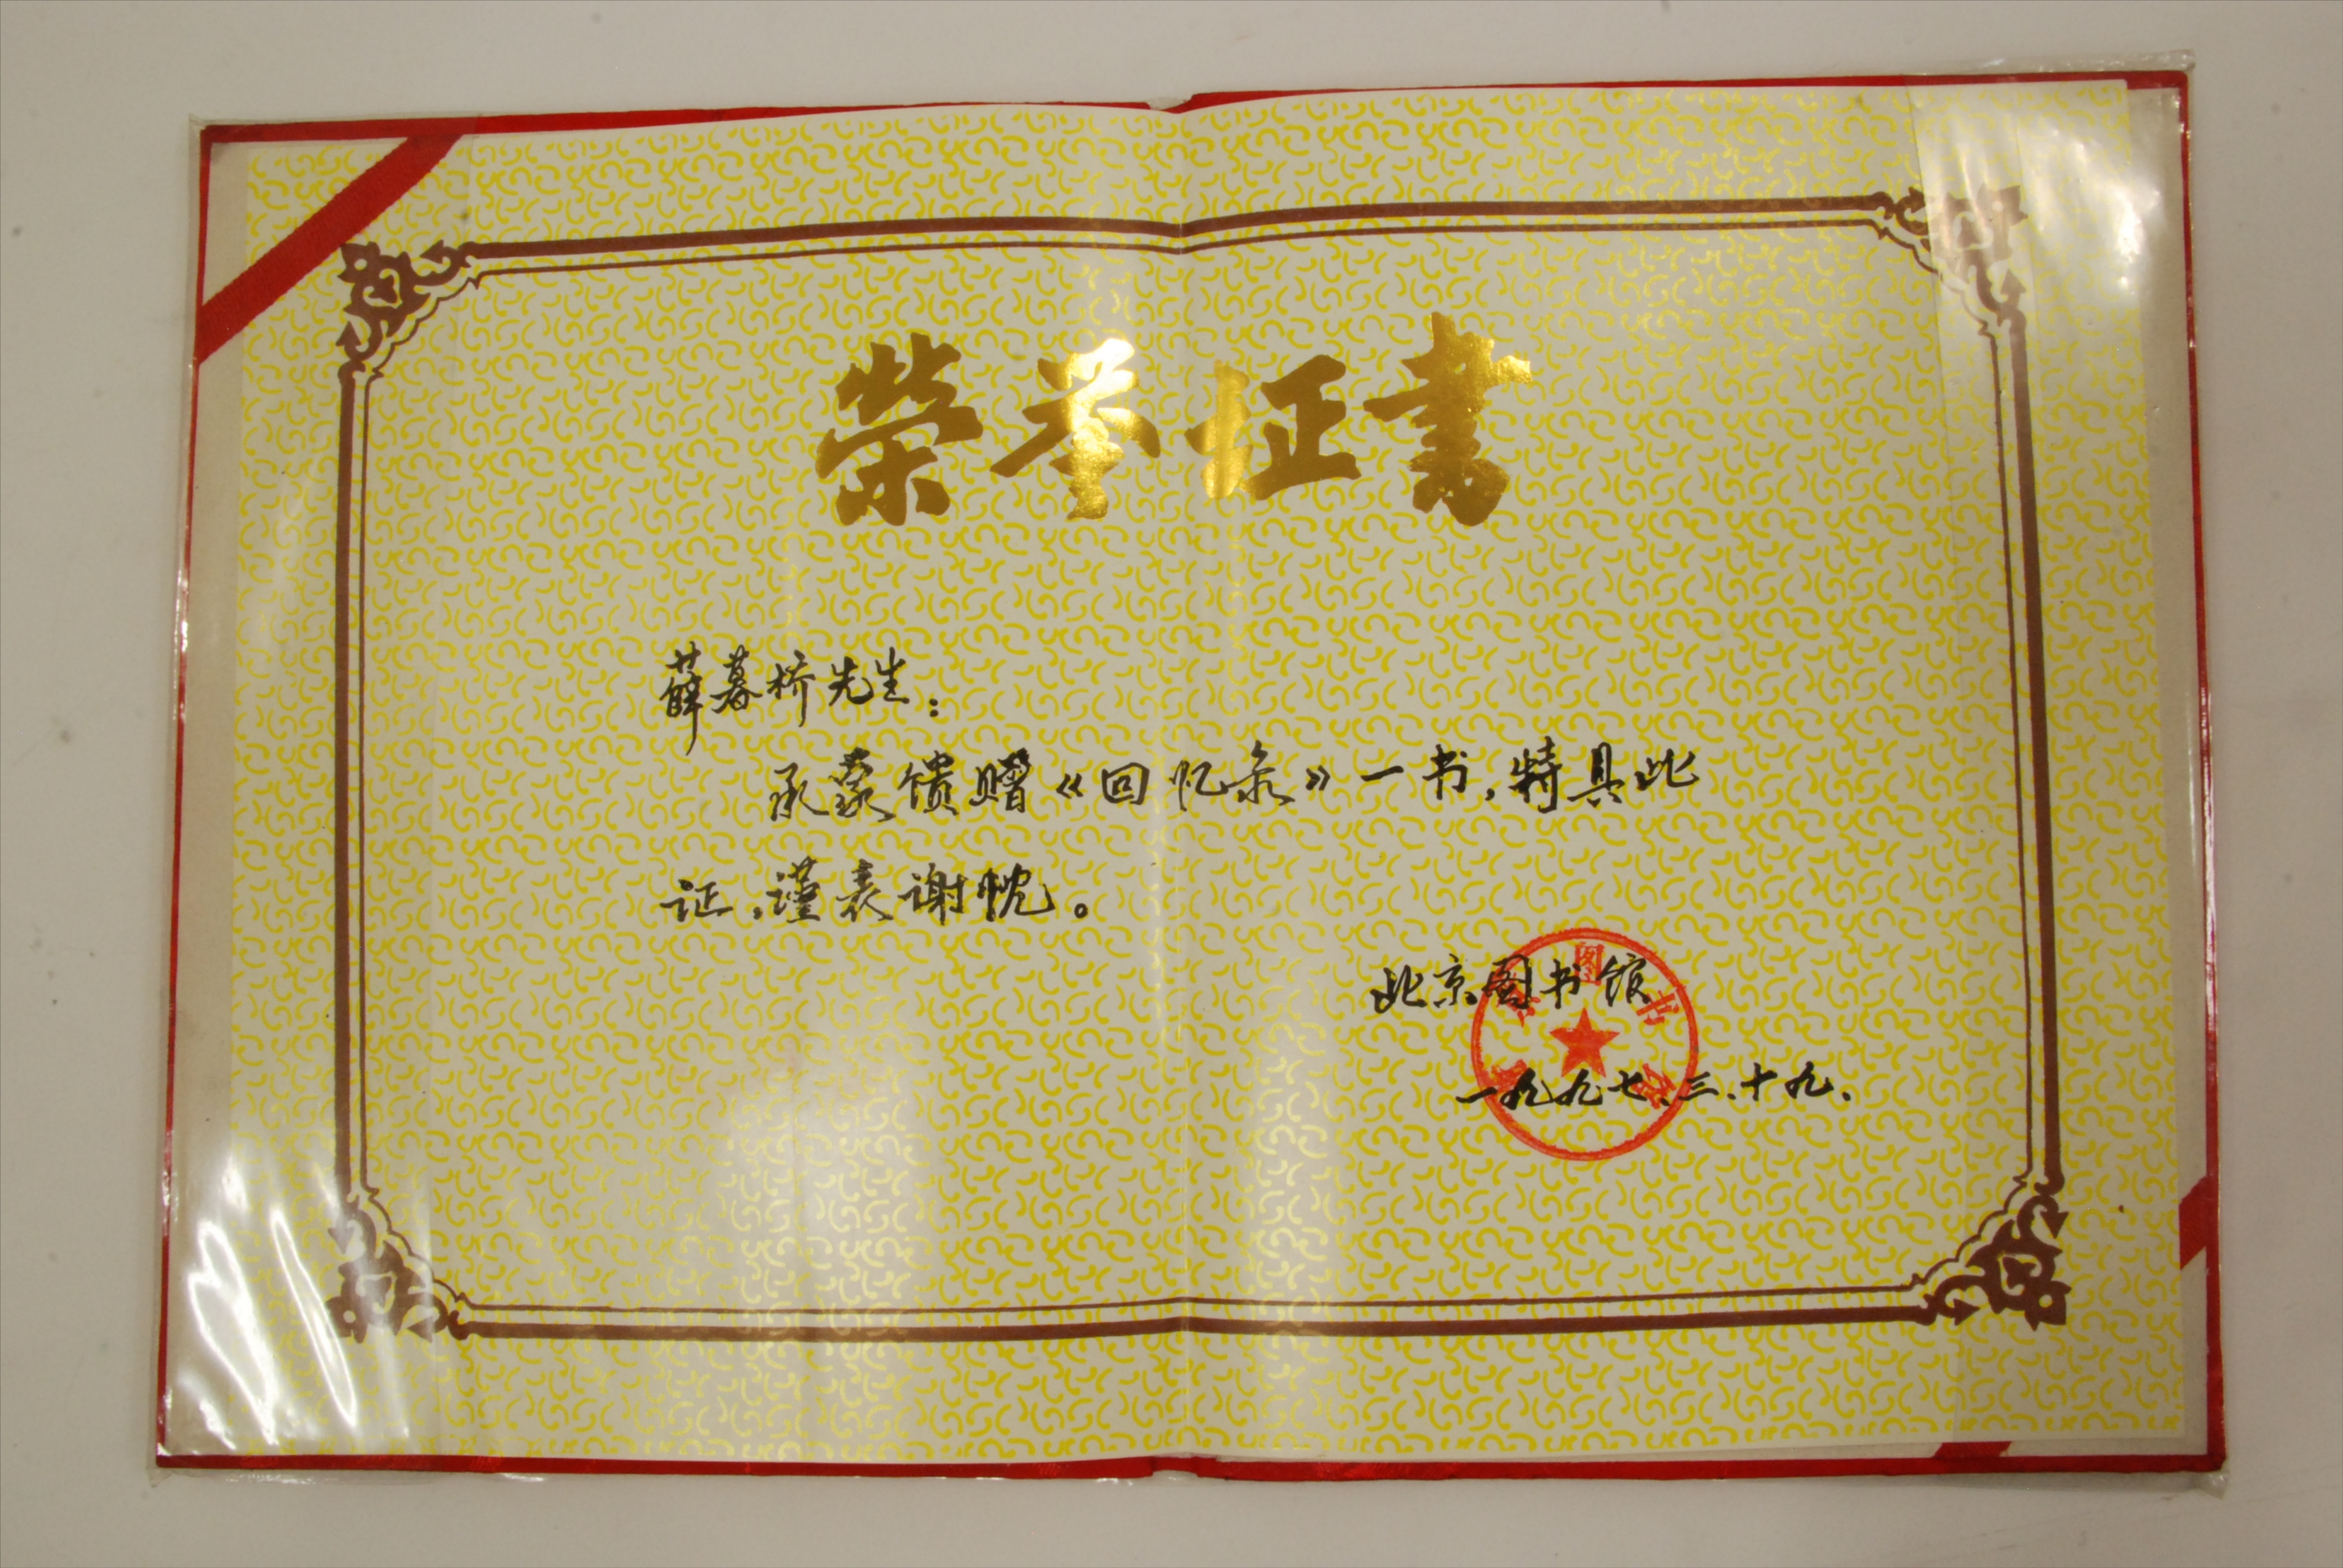 荣誉证书
薛暮桥先生：
承蒙馈赠《回忆录》一书，特具此
证，谨表谢忱。
北京图书馆
一九九七、三、十九、
北京图书馆